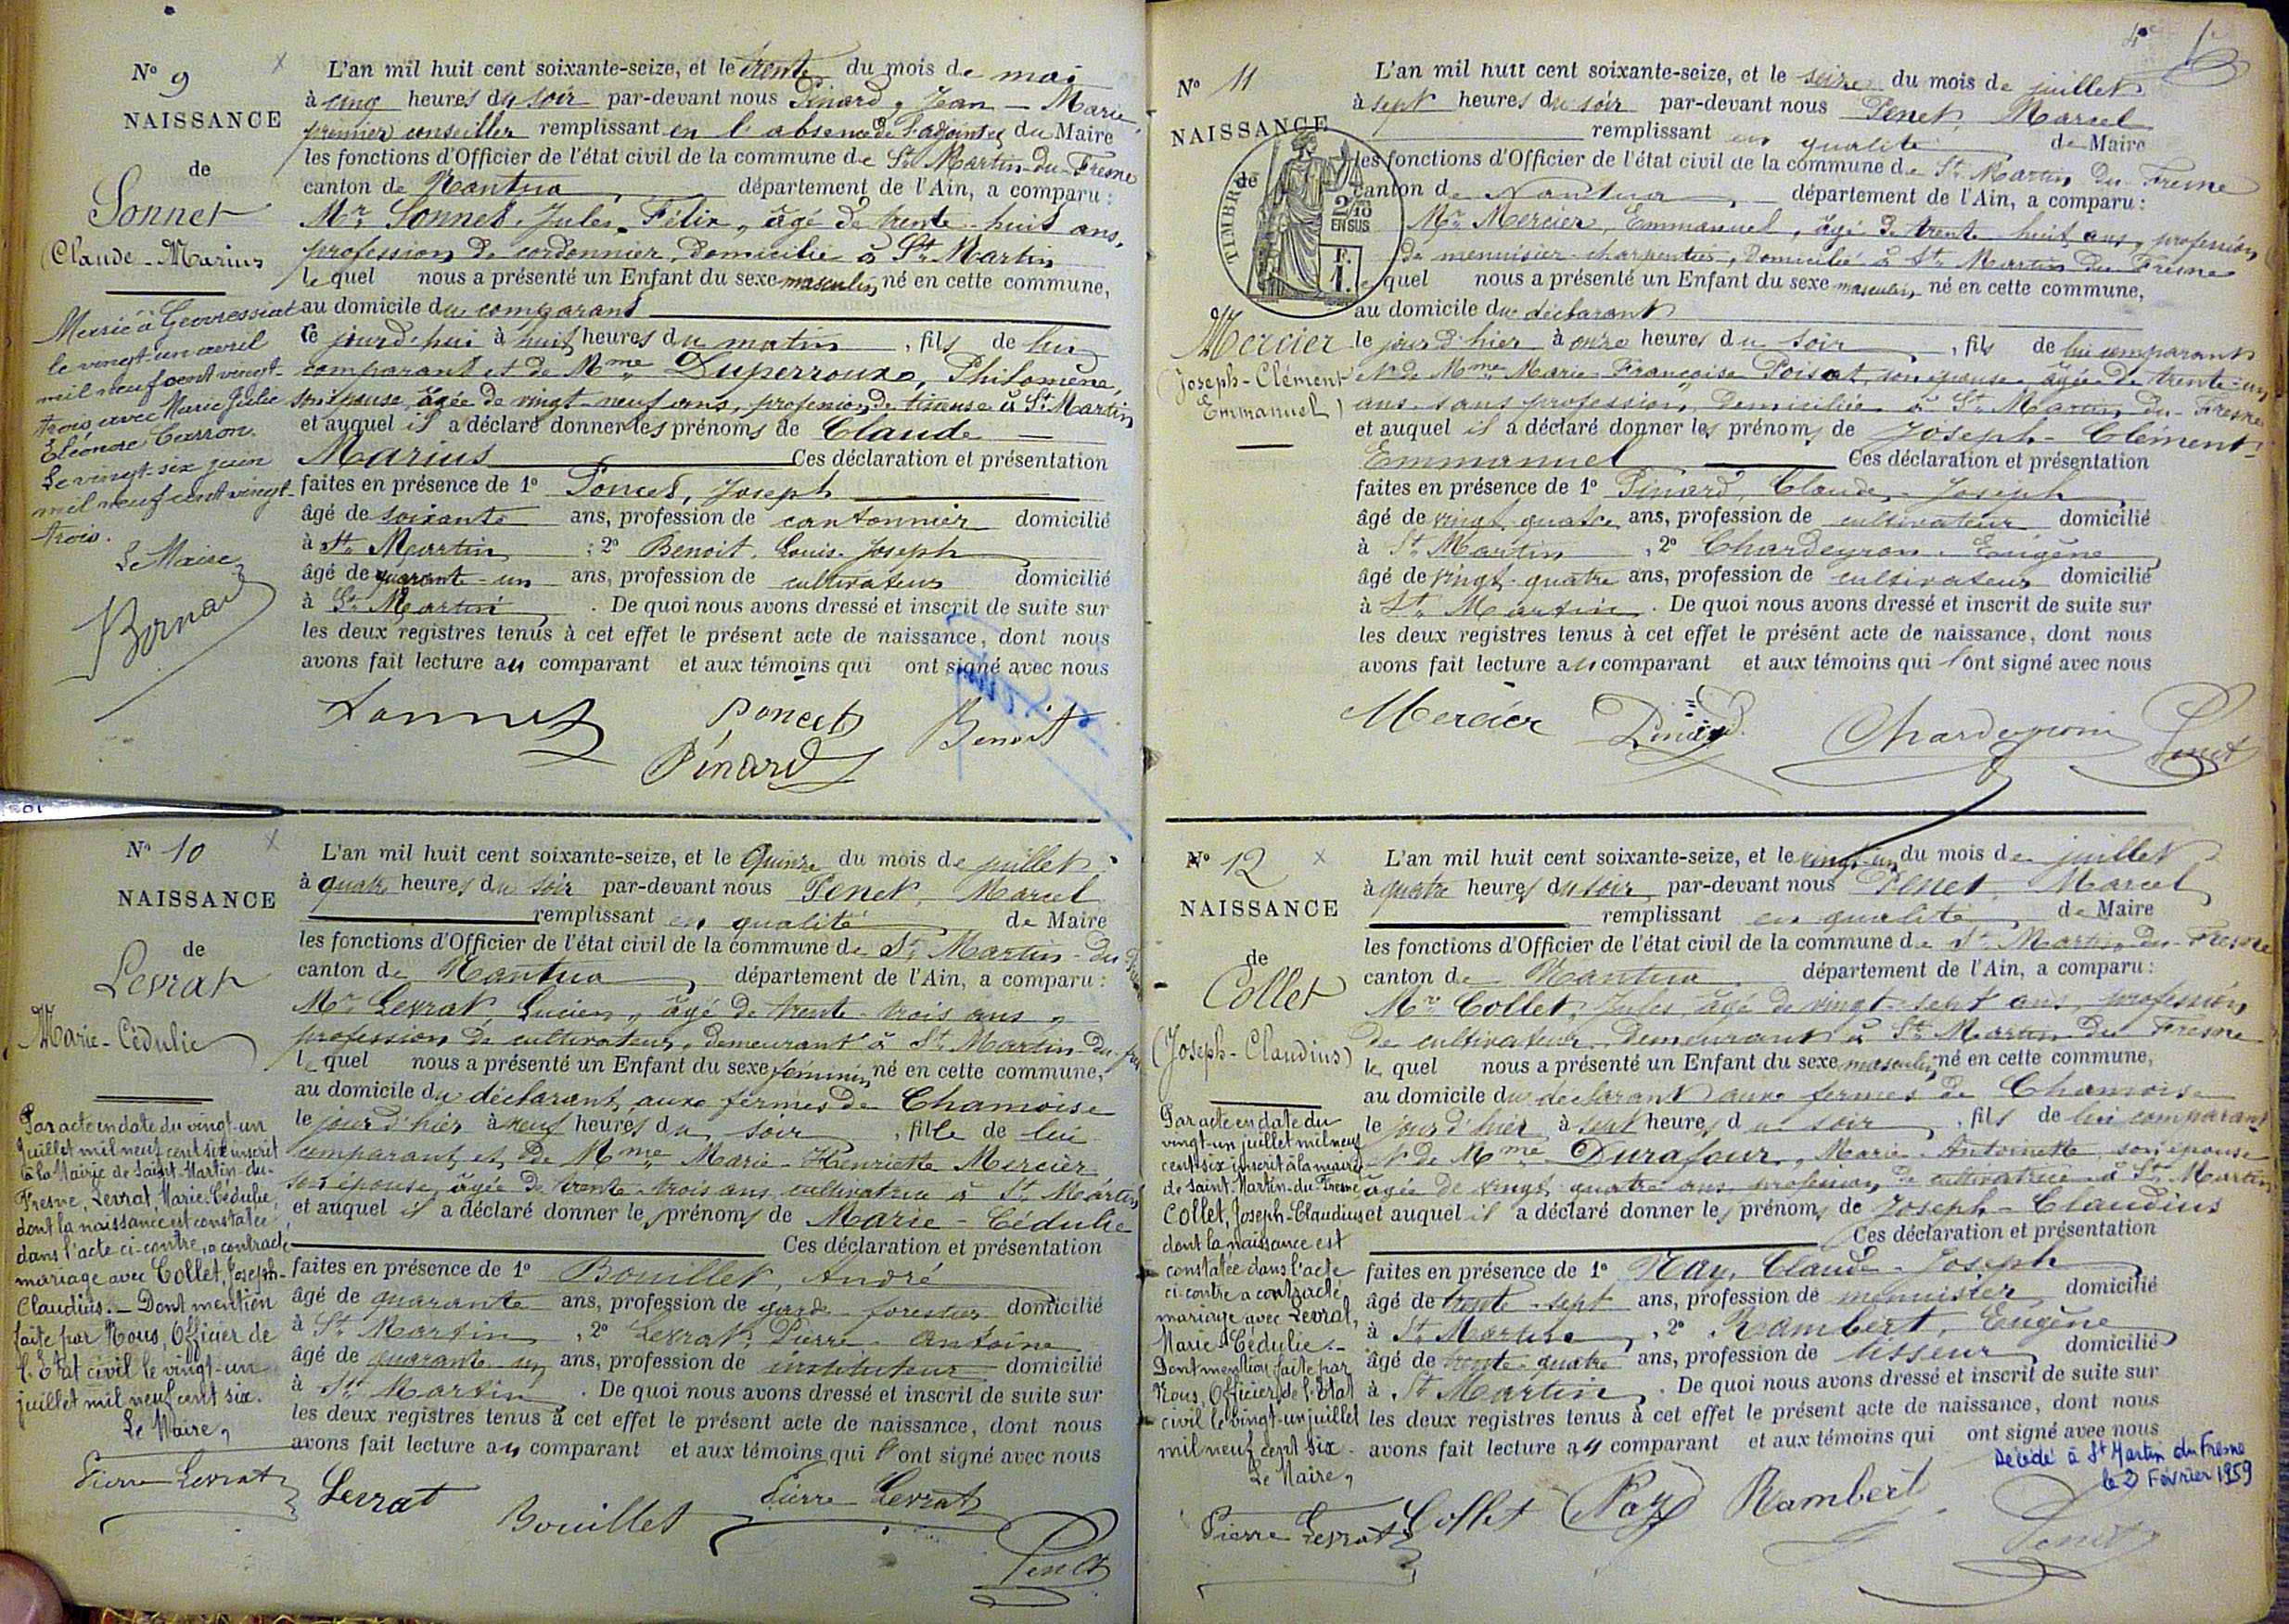 N° 9
NAISSANCE
de
Sonnet
(Claude-Marius
Marié à Geovressiat
le vingt-un avril
mil neuf cent vingt-
trois avec Marie Julie
Eléonore Carron.
Le vingt-six juin
mil neuf cent vingt-
trois.
Le Maire,
L'an mil huit cent soixante-seize, et le trente du mois de mai
à cinq heures du soir par-devant nous Pinard, Jean-Marie,
premier conseiller remplissant en l'absence de l'adjoint et du Maire
les fonctions d'Officier de l'état civil de la commune de St Martin-du-Fresne
canton de Nantua, département de l'Ain, a comparu :
Mr Sonnet, Jules-Félix, âgé de trente-huit ans,
profession de cordonnier, domicilié à St Martin
lequel nous a présenté un Enfant du sexe masculin, né en cette commune,
au domicile du comparant
ce jourd'hui à huit heures du matin, fils de lui
comparant et de Mme Duperroux, Philomène,
son épouse, âgée de vingt-neuf ans, profession de tisseuse à St Martin
et auquel il a déclaré donner les prénoms de Claude
Marius Ces déclaration et présentation
faites en présence de 1° Poncet, Joseph
âgé de soixante ans, profession de cantonnier domicilié
à St Martin ; 2° Benoit, Louis-Joseph
âgé de quarante-un ans, profession de cultivateur domicilié
à St Martin. De quoi nous avons dressé et inscrit de suite sur
les deux registres tenus à cet effet le présent acte de naissance, dont nous
avons fait lecture au comparant et aux témoins qui ont signé avec nous
Sonnet Poncet Benoit
Pinard
N° 10
NAISSANCE
de
Levrat
Marie-Cédulie
Par acte en date du vingt-un
juillet mil neuf cent six inscrit
à la Mairie de Saint-Martin-du-
Fresne, Levrat, Marie-Cédulie,
dont la naissance est constatée
dans l'acte ci-contre, a contracté
mariage avec Collet, Joseph-
Claudius.- Dont mention
faite par Nous, Officier de
l'Etat civil le vingt-un
juillet mil neuf cent six.
Le Maire,
Pierre Levrat
L'an mil huit cent soixante-seize, et le quinze du mois de juillet
à quatre heures du soir par-devant nous Penet, Marcel
remplissant en qualité de Maire
les fonctions d'Officier de l'état civil de la commune de St Martin-du
canton de Nantua, département de l'Ain, a comparu :
Mr Levrat, Lucien, âgé de trente-trois ans,
profession de cultivateur, demeurant à St Martin-du
lequel nous a présenté un Enfant du sexe féminin, né en cette commune,
au domicile du déclarant, aux fermes de Chamoise
le jour d'hier à neuf heures du soir, fille de lui
comparant, et de Mme Marie-Henriette Mercier
son épouse, âgée de trente-trois ans, cultivatrice à St Martin,
et auquel il a déclaré donner les prénoms de Marie-Cédulie
Ces déclaration et présentation
faites en présence de 1° Bouillet, André
âgé de quarante ans, profession de garde forestier domicilié
à St Martin, 2° Levrat, Pierre-Antoine
âgé de quarante-un ans, profession de instituteur domicilié
à St Martin. De quoi nous avons dressé et inscrit de suite sur
les deux registres tenus à cet effet le présent acte de naissance, dont nous
avons fait lecture au comparant et aux témoins qui ont signé avec nous
Levrat Bouillet Pierre Levrat
Penet
N° 11
NAISSANCE
de
TIMBRE
2/10
EN SUS
F.
1.
Mercier
(Joseph-Clément
Emmanuel)
L'an mil huit cent soixante-seize, et le seize du mois de juillet
à sept heures du soir par-devant nous Penet, Marcel
remplissant en qualité de Maire
les fonctions d'Officier de l'état civil de la commune de St Martin-du-Fresne
canton de Nantua, département de l'Ain, a comparu :
Mr Mercier, Emmanuel, âgé de trente-huit ans, profession
de menuisier-charpentier, domicilié à St Martin du Fresne
lequel nous a présenté un Enfant du sexe masculin, né en cette commune,
au domicile du déclarant
le jour d'hier à onze heures du soir, fils de lui comparant
et de Mme Marie-Françoise Poisat, son épouse, âgée de trente-un
ans, sans profession, domiciliée à St Martin-du-Fresne
et auquel il a déclaré donner les prénoms de Joseph-Clément-
Emmanuel Ces déclaration et présentation
faites en présence de 1° Pinard, Claude-Joseph
âgé de vingt-quatre ans, profession de cultivateur domicilié
à St Martin, 2° Chardeyron, Eugène
âgé de vingt-quatre ans, profession de cultivateur domicilié
à St Martin. De quoi nous avons dressé et inscrit de suite sur
les deux registres tenus à cet effet le présent acte de naissance, dont nous
avons fait lecture au comparant et aux témoins qui ont signé avec nous
Mercier Pinard Chardeyron Penet
N° 12
NAISSANCE
de
Collet
(Joseph-Claudius)
Par acte en date du
vingt-un juillet mil neuf
cent six inscrit à la mairie
de Saint-Martin-du-Fresne
Collet, Joseph-Claudius
dont la naissance est
constatée dans l'acte
ci-contre a contracté
mariage avec Levrat,
Marie-Cédulie.-
Dont mention faite par
Nous, Officier de l'Etat
civil le vingt-un juillet
mil neuf cent six.
Le Maire,
Pierre Levrat
L'an mil huit cent soixante-seize, et le vingt-un du mois de juillet
à quatre heures du soir par-devant nous Penet, Marcel
remplissant en qualité de Maire
les fonctions d'Officier de l'état civil de la commune de St Martin-du-Fresne
canton de Nantua, département de l'Ain, a comparu :
Mr Collet, Jules, âgé de vingt-sept ans, profession
de cultivateur, demeurant à St Martin du Fresne
lequel nous a présenté un Enfant du sexe masculin, né en cette commune,
au domicile du déclarant aux fermes de Chamoise
le jour d'hier à sept heures du soir, fils de lui comparant
et de Mme Durafour, Marie-Antoinette, son épouse
âgée de vingt-quatre ans, profession de cultivatrice à St Martin
et auquel il a déclaré donner les prénoms de Joseph-Claudius
Ces déclaration et présentation
faites en présence de 1° Nay, Claude-Joseph
âgé de trente-sept ans, profession de menuisier domicilié
à St Martin, 2° Rambert, Eugène
âgé de trente-quatre ans, profession de tisseur domicilié
à St Martin. De quoi nous avons dressé et inscrit de suite sur
les deux registres tenus à cet effet le présent acte de naissance, dont nous
avons fait lecture au comparant et aux témoins qui ont signé avec nous
Décédé à St Martin du Fresne
le 2 Février 1959
Collet Nay Rambert Penet